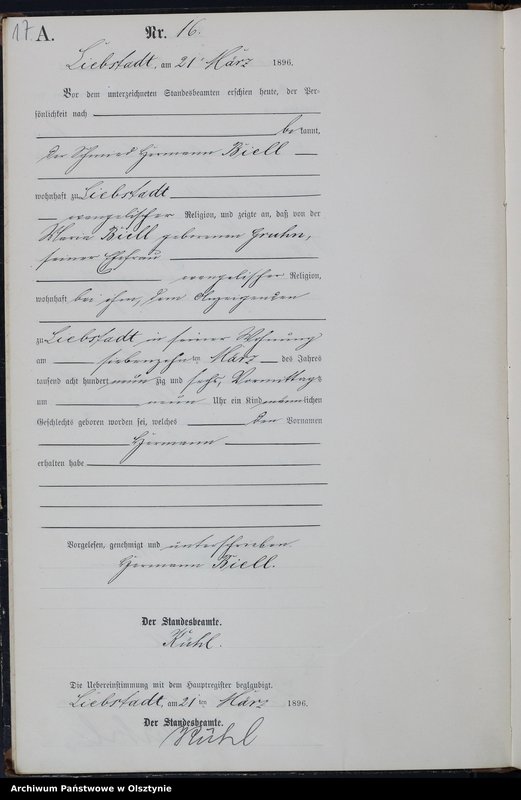 17.
A.
Nr. 16.
Liebstadt, am 21 März 1896.
Vor dem unterzeichneten Standesbeamten erschien heute, der Per-
sönlichkeit nach
be kannt,
der Schmied Hermann Biell
wohnhaft zu Liebstadt
evangelischer Religion, und zeigte an, daß von der
Maria Biell geborenen Gruhn,
seiner Ehefrau
evangelischer Religion,
wohnhaft bei ihm, dem Anzeigenden
zu Liebstadt in seiner Wohnung
am siebenzehn ten März des Jahres
tausend acht hundert neun zig und sechs, Vormittags
um neun Uhr ein Kind männlichen
Geschlechts geboren worden sei, welches den Vornamen
Hermann
erhalten habe
Vorgelesen, genehmigt und unterschrieben.
Hermann Biell.
Der Standesbeamte.
Kühl.
Die Uebereinstimmung mit dem Hauptregister beglaubigt.
Liebstadt, am 21 ten März 1896.
Der Standesbeamte.
Kühl
Archiwum Państwowe w Olsztynie